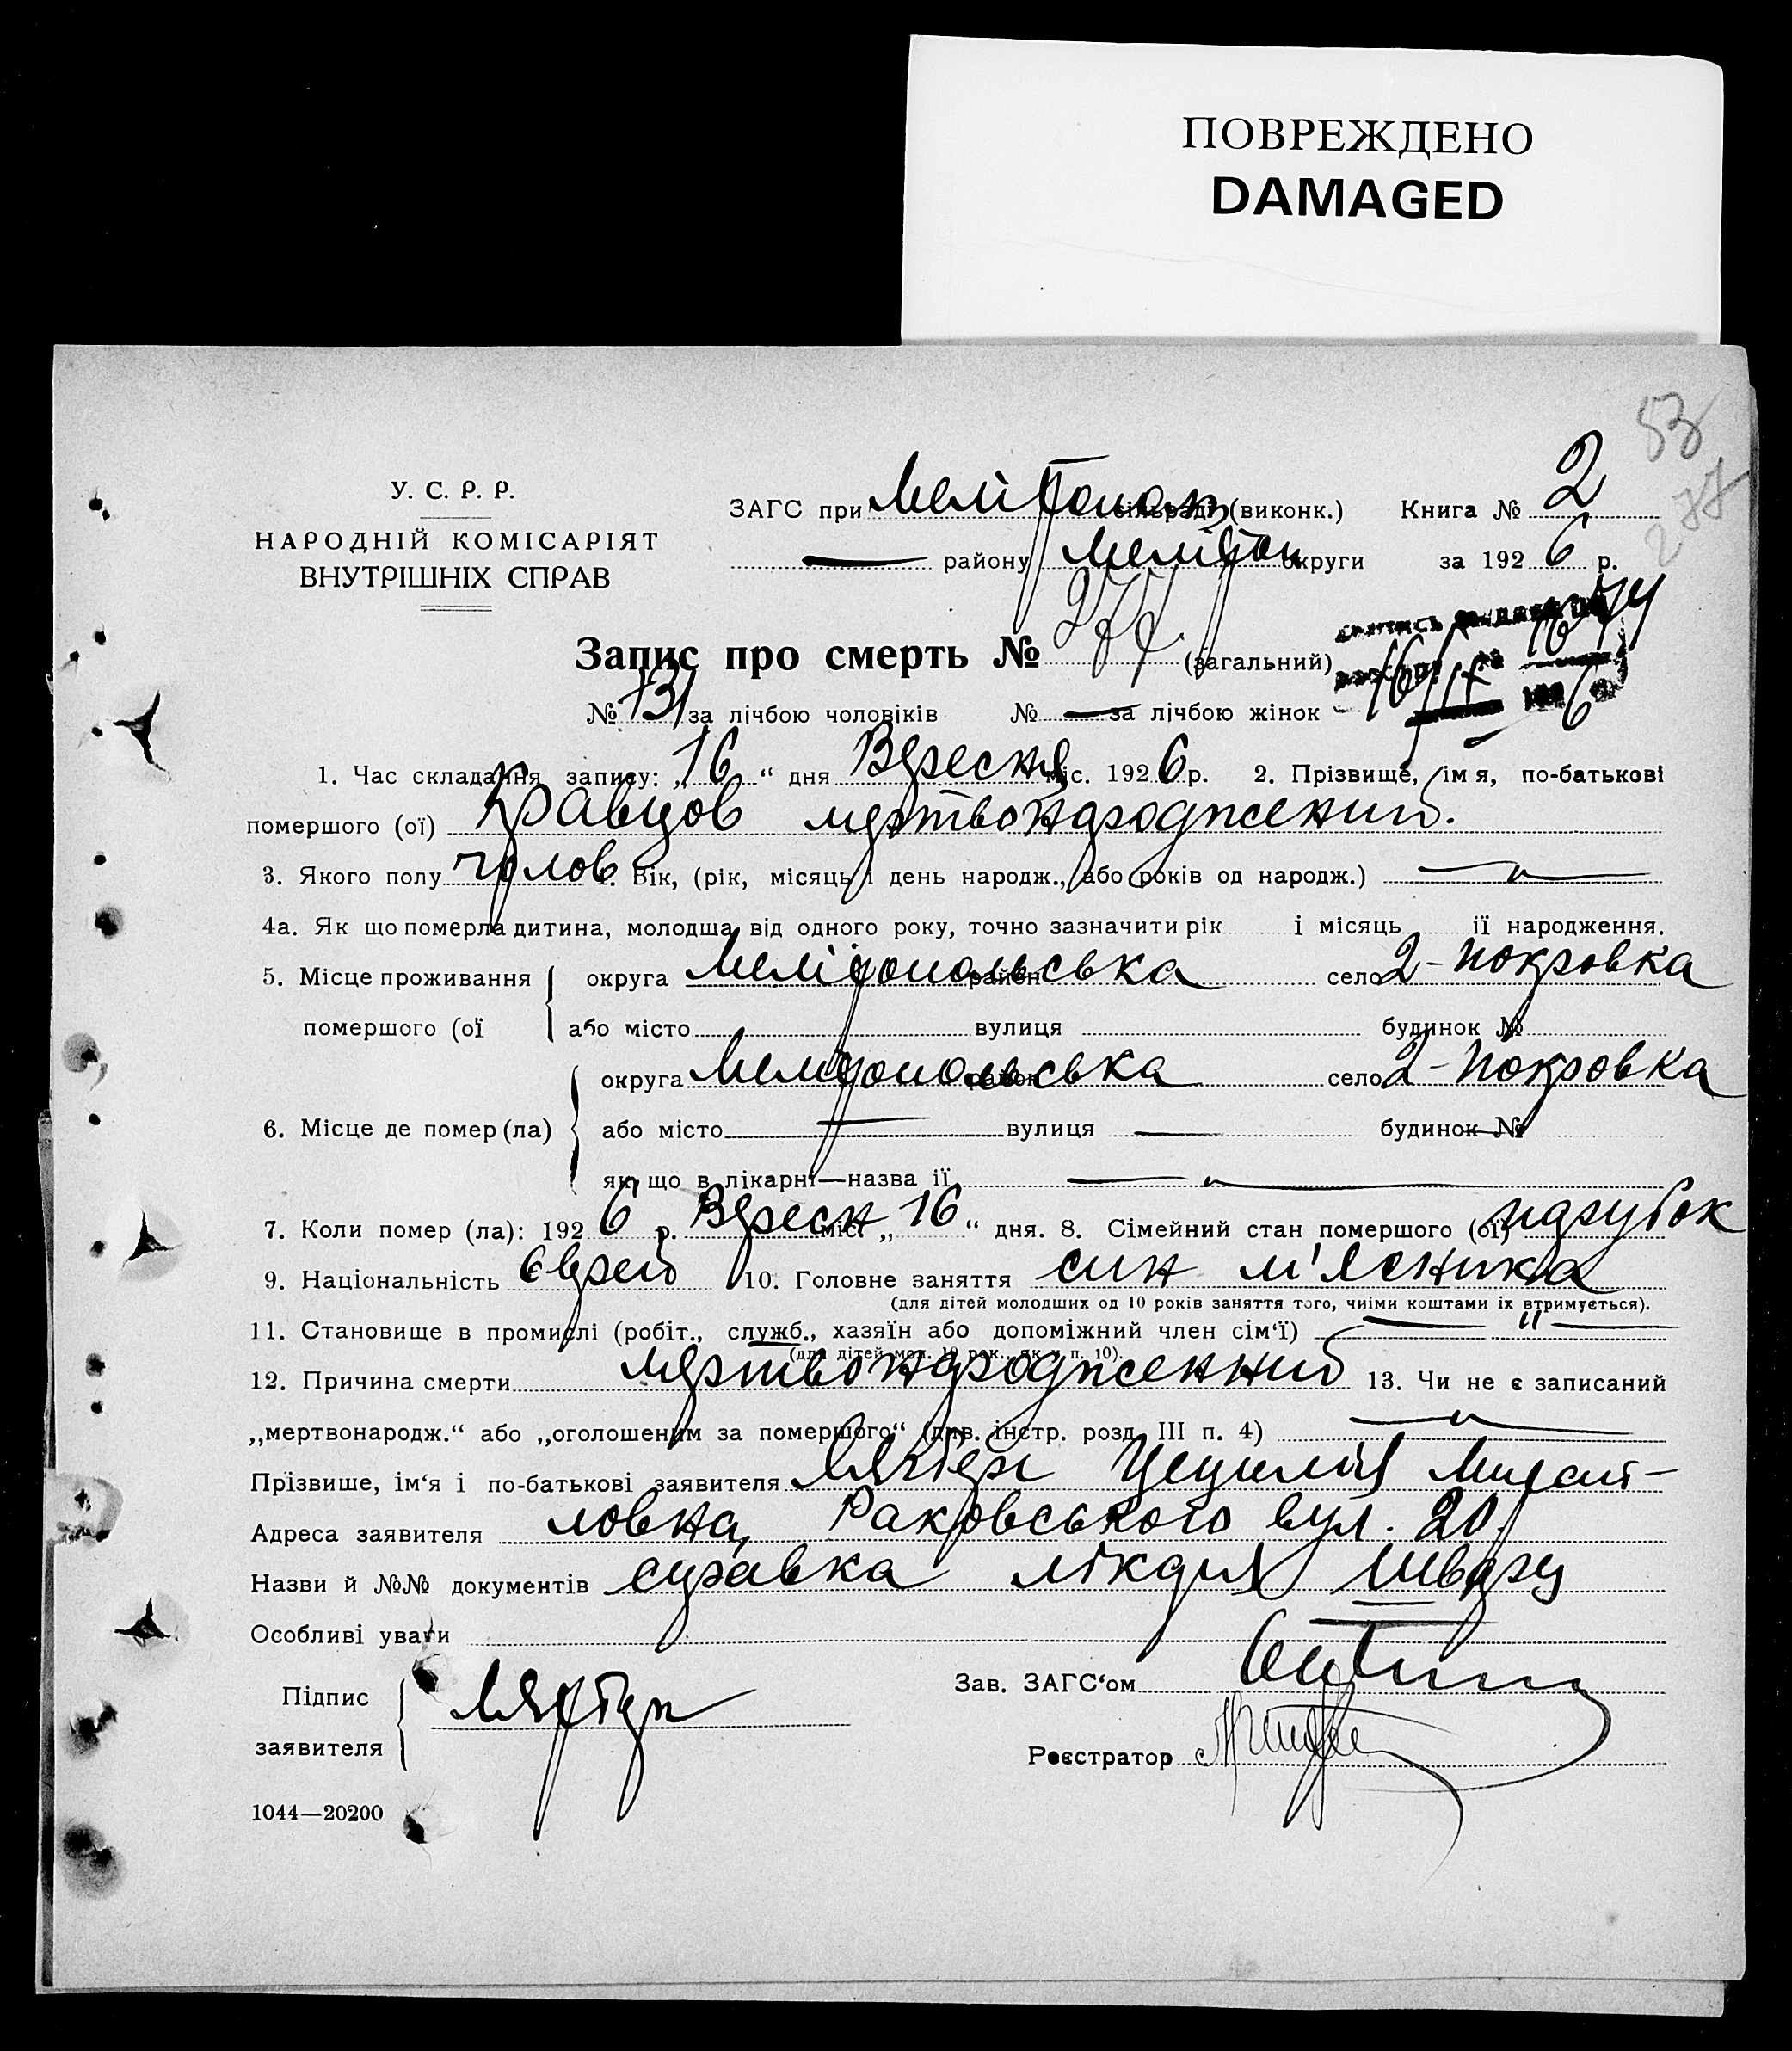 ПОВРЕЖДЕНО
DAMAGED
53
277
У. С. Р. Р.
НАРОДНІЙ КОМІСАРІЯТ
ВНУТРІШНІХ СПРАВ
ЗАГС при Мелітопол сільраді (виконк.) Книга № 2
— району Меліпол округи за 1926 р.
Запис про смерть № 277 (загальний)
№ 131 за лічбою чоловіків № — за лічбою жінок
1. Час складання запису: „16“ дня Вересня міс. 1926 р. 2. Прізвище, імя, по-батькові
помершого (ої) Кравцов мертвонароджений.
3. Якого полу чолов 4. Вік, (рік, місяць і день народж., або років од народж.) — „ —
4а. Як що померла дитина, молодша від одного року, точно зазначити рік і місяць її народження.
5. Місце проживання округа Мелітопольська район село 2-Покровка
помершого (ої або місто вулиця будинок №
округа Мелітопольська район село 2-Покровка
6. Місце де помер (ла) або місто — вулиця — будинок №
як що в лікарні—назва її — „ —
7. Коли помер (ла): 1926 р. Вересн міс. „16“ дня. 8. Сімейний стан помершого (ої) парубок
9. Національність Єврей 10. Головне заняття син м'ясника
(для дітей молодших од 10 років заняття того, чиїми коштами їх втримується).
11. Становище в промислі (робіт., служб., хазяїн або допоміжний член сім‘ї) — „ —
(для дітей мол. 10 рок., як у п. 10).
12. Причина смерти мертвонароджений 13. Чи не є записаний
„мертвонародж.“ або „оголошеним за помершого“ (див. інстр. розд. III п. 4) — „ —
Прізвише, ім‘я і по-батькові заявителя Цецилія Михай-
Адреса заявителя ловна, Раковського вул. 20
Назви й №№ документів справка лікаря Шварц
Особливі уваги
Підпис
заявителя
Зав. ЗАГС‘ом
Реєстратор
1044—20200